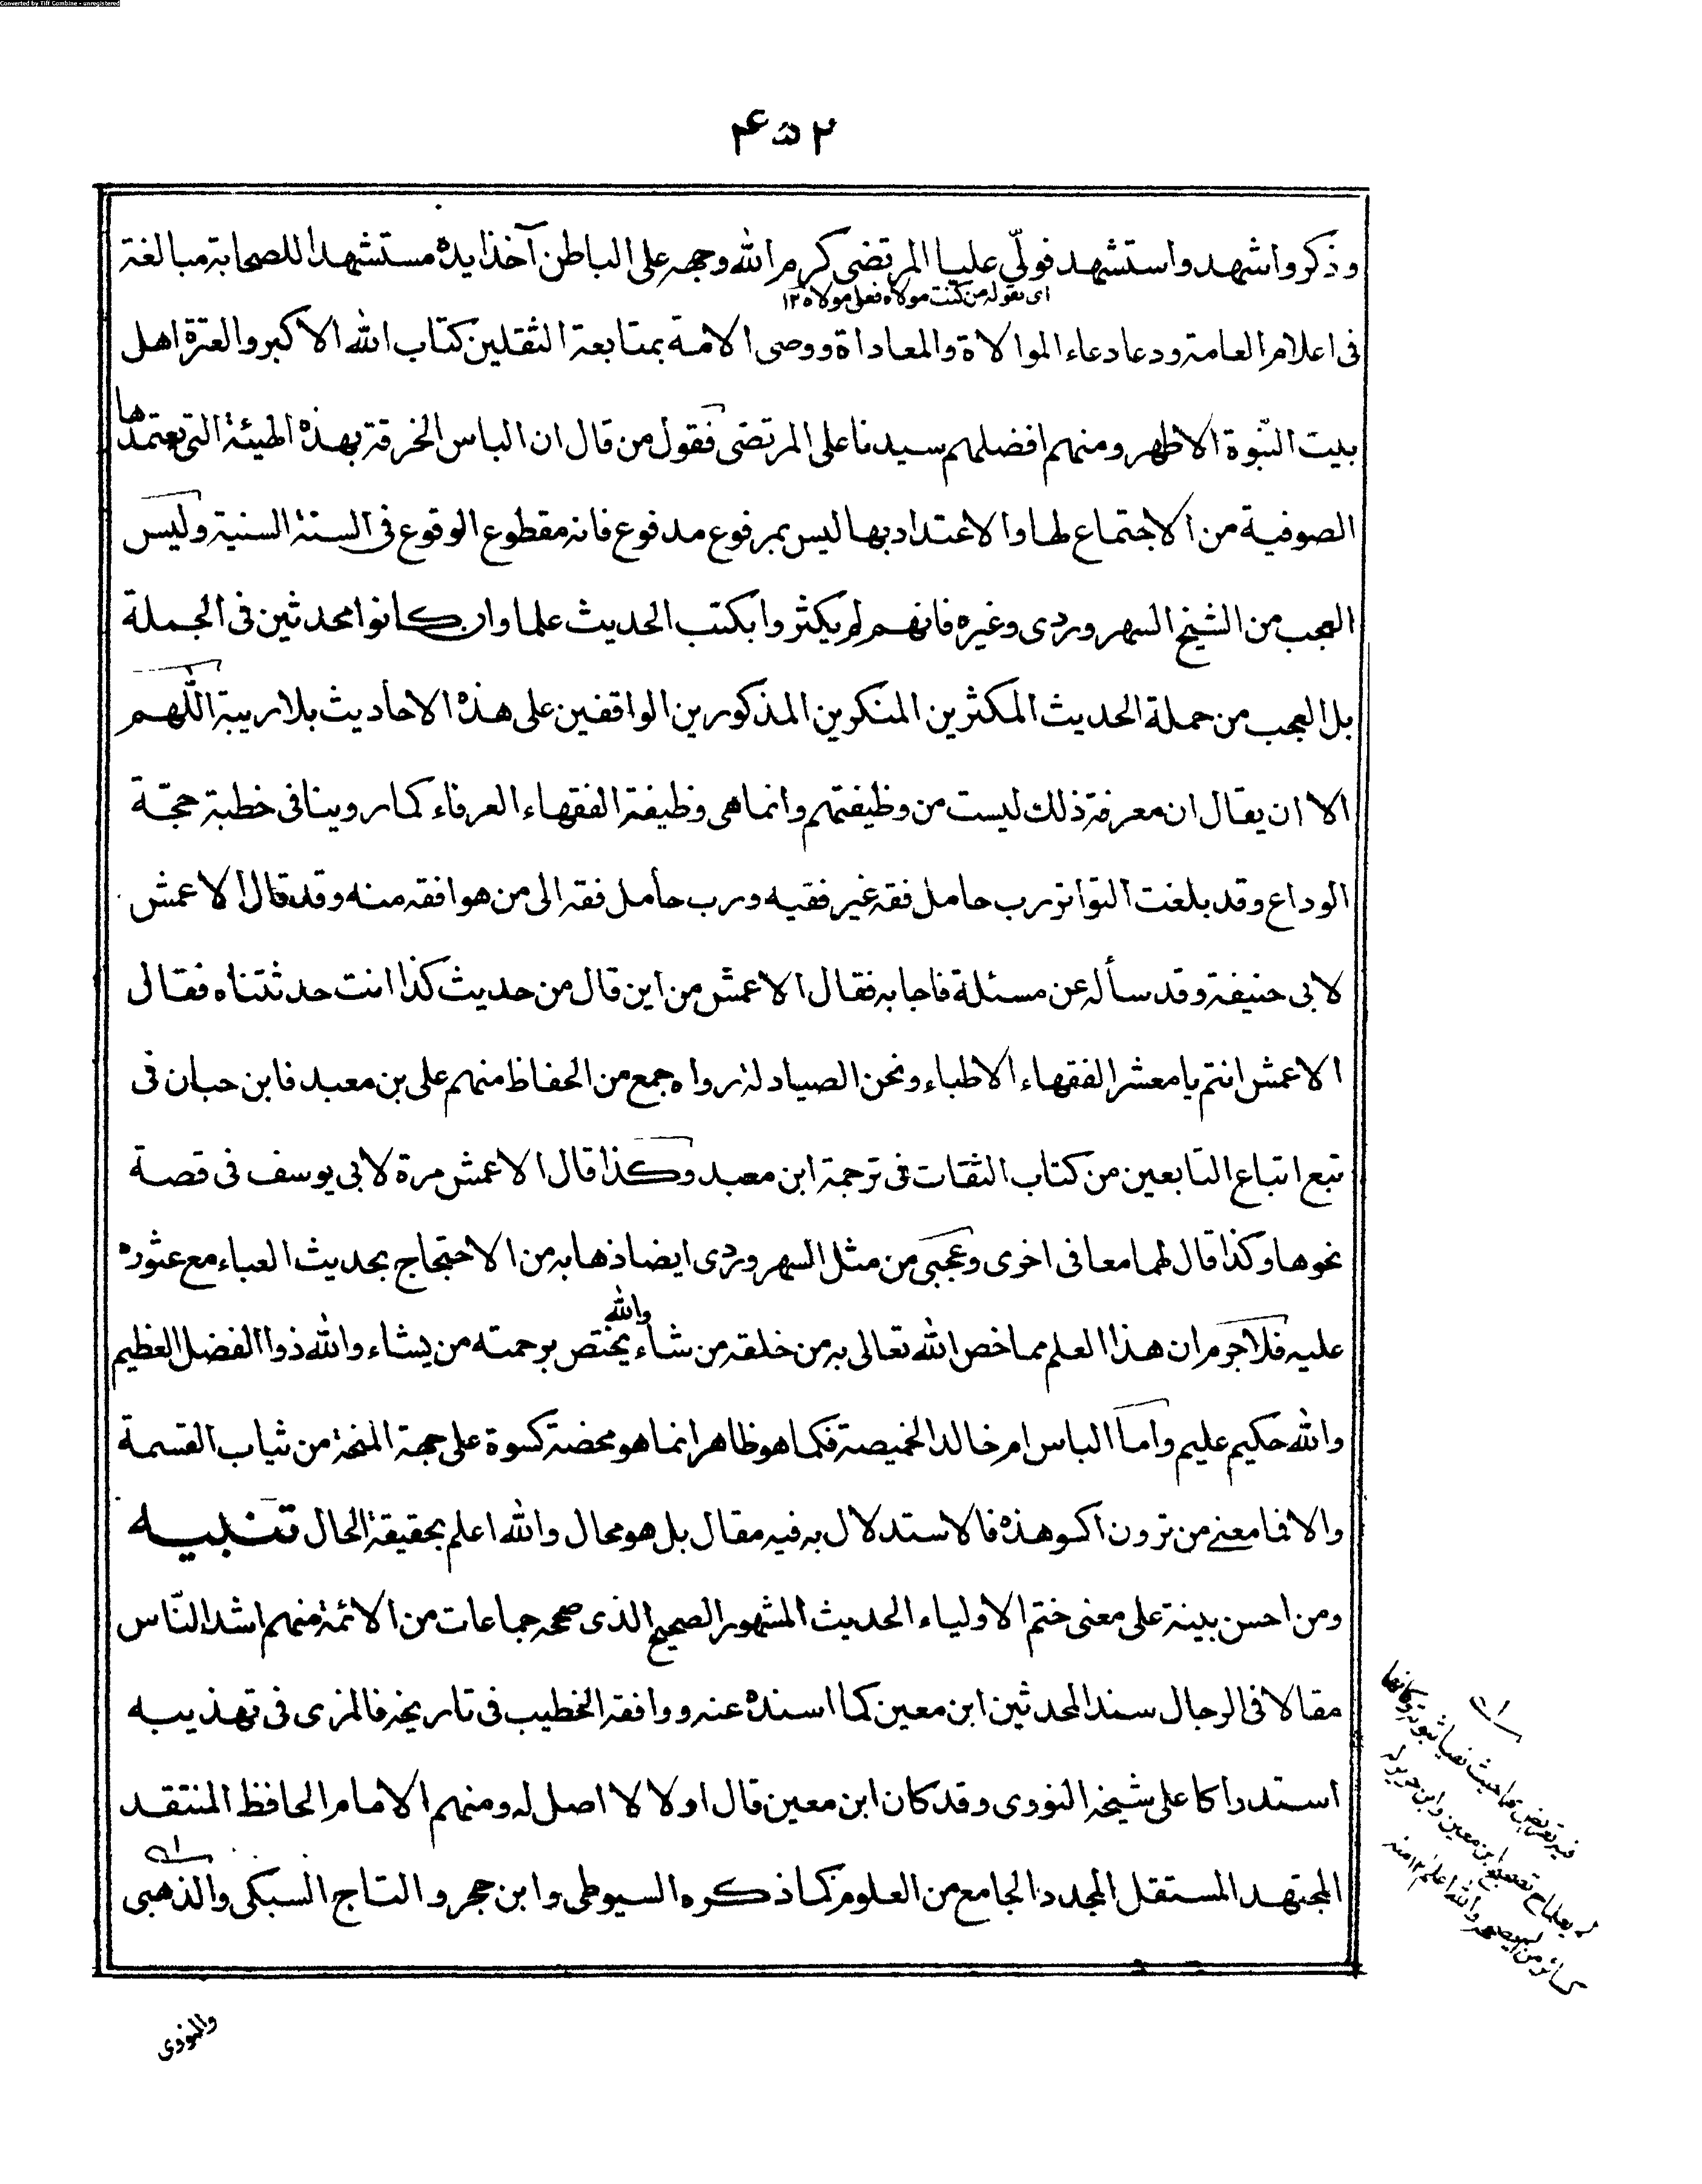 Converted by Tiff Combine - unregistered
۴۵۲
وذكر واشهد واستشهد فولّي عليا المرتضى كرم الله وجهه على الباطن آخذا يده مستشهدا للصحابة مبالغة
اى بقوله من كنت مولاه فعلى مولاه ۱۲
فى اعلام العامة ودعا دعاء الموالاة والمعاداة ووصى الامة بمتابعة الثقلين كتاب الله الاكبر والعترة اهل
بيت النّبوة الاطهر ومنهم افضلهم سيدنا على المرتضى فقول من قال ان الباس الخرقة بهذه الهيئة التى يعتمدها
الصوفية من الاجتماع لها والاعتداد بها ليس بمرفوع مدفوع فانه مقطوع الوقوع فى السنة السنية وليس
العجب من الشيخ السهروردى وغيره فانهم لم يكثروا بكتب الحديث علما وان كانوا محدثين فى الجملة
بل العجب من حملة الحديث المكثرين المنكرين المذكورين الواقفين على هذه الاحاديث بلا ريبة اللهم
الا ان يقال ان معرفة ذلك ليست من وظيفتهم وانما هى وظيفة الفقهاء العرفاء كما روينا فى خطبة حجّة
الوداع وقد بلغت التواتر رب حامل فقه غير فقيه ورب حامل فقه الى من هو افقه منه وقد قال الاعمش
لابى حنيفة وقد سأله عن مسئلة فاجابه فقال الاعمش من اين قال من حديث كذا انت حدثتناه فقال
الاعمش انتم يا معشر الفقهاء الاطباء ونحن الصيادلة رواه جمع من الحفاظ منهم على بن معبد فابن حبان فى
تبع اتباع التابعين من كتاب الثقات فى ترجمة ابن معبد وكذا قال الاعمش مرة لابى يوسف فى قصة
نحوها وكذا قال لهما معا فى اخرى وعجبى من مثل السهروردى ايضا ذهابه من الاحتجاج بحديث العباء مع عثوره
عليه فلا جرم ان هذا العلم مما خص الله تعالى به من خلقه من شاء والله يختص برحمته من يشاء والله ذوا الفضل العظيم
والله حكيم عليم واما الباس ام خالد الخميصة فكما هو ظاهر انما هو محضة كسوة على جهة المنحة من ثياب القسمة
والا فما معنى من ترون اكسو هذه فالاستدلال به فيه مقال بل هو محال والله اعلم بحقيقة الحال تنبيه
ومن احسن بينة على معنى ختم الاولياء الحديث المشهور الصحيح الذى صححه جماعات من الائمة منهم اشد النّاس
مقالا فى الرجال سند المحدثين ابن معين كما اسنده عنه ووافقه الخطيب فى تاريخه فالمزى فى تهذيبه
استدراكا على شيخه النووى وقد كان ابن معين قال اولا لا اصل له ومنهم الامام الحافظ المنتقد
المجتهد المستقل المجدد الجامع من العلوم كما ذكره السيوطى وابن حجر والتاج السبكى والذهبى
والنووى
والله اعلم ۱۲ منه